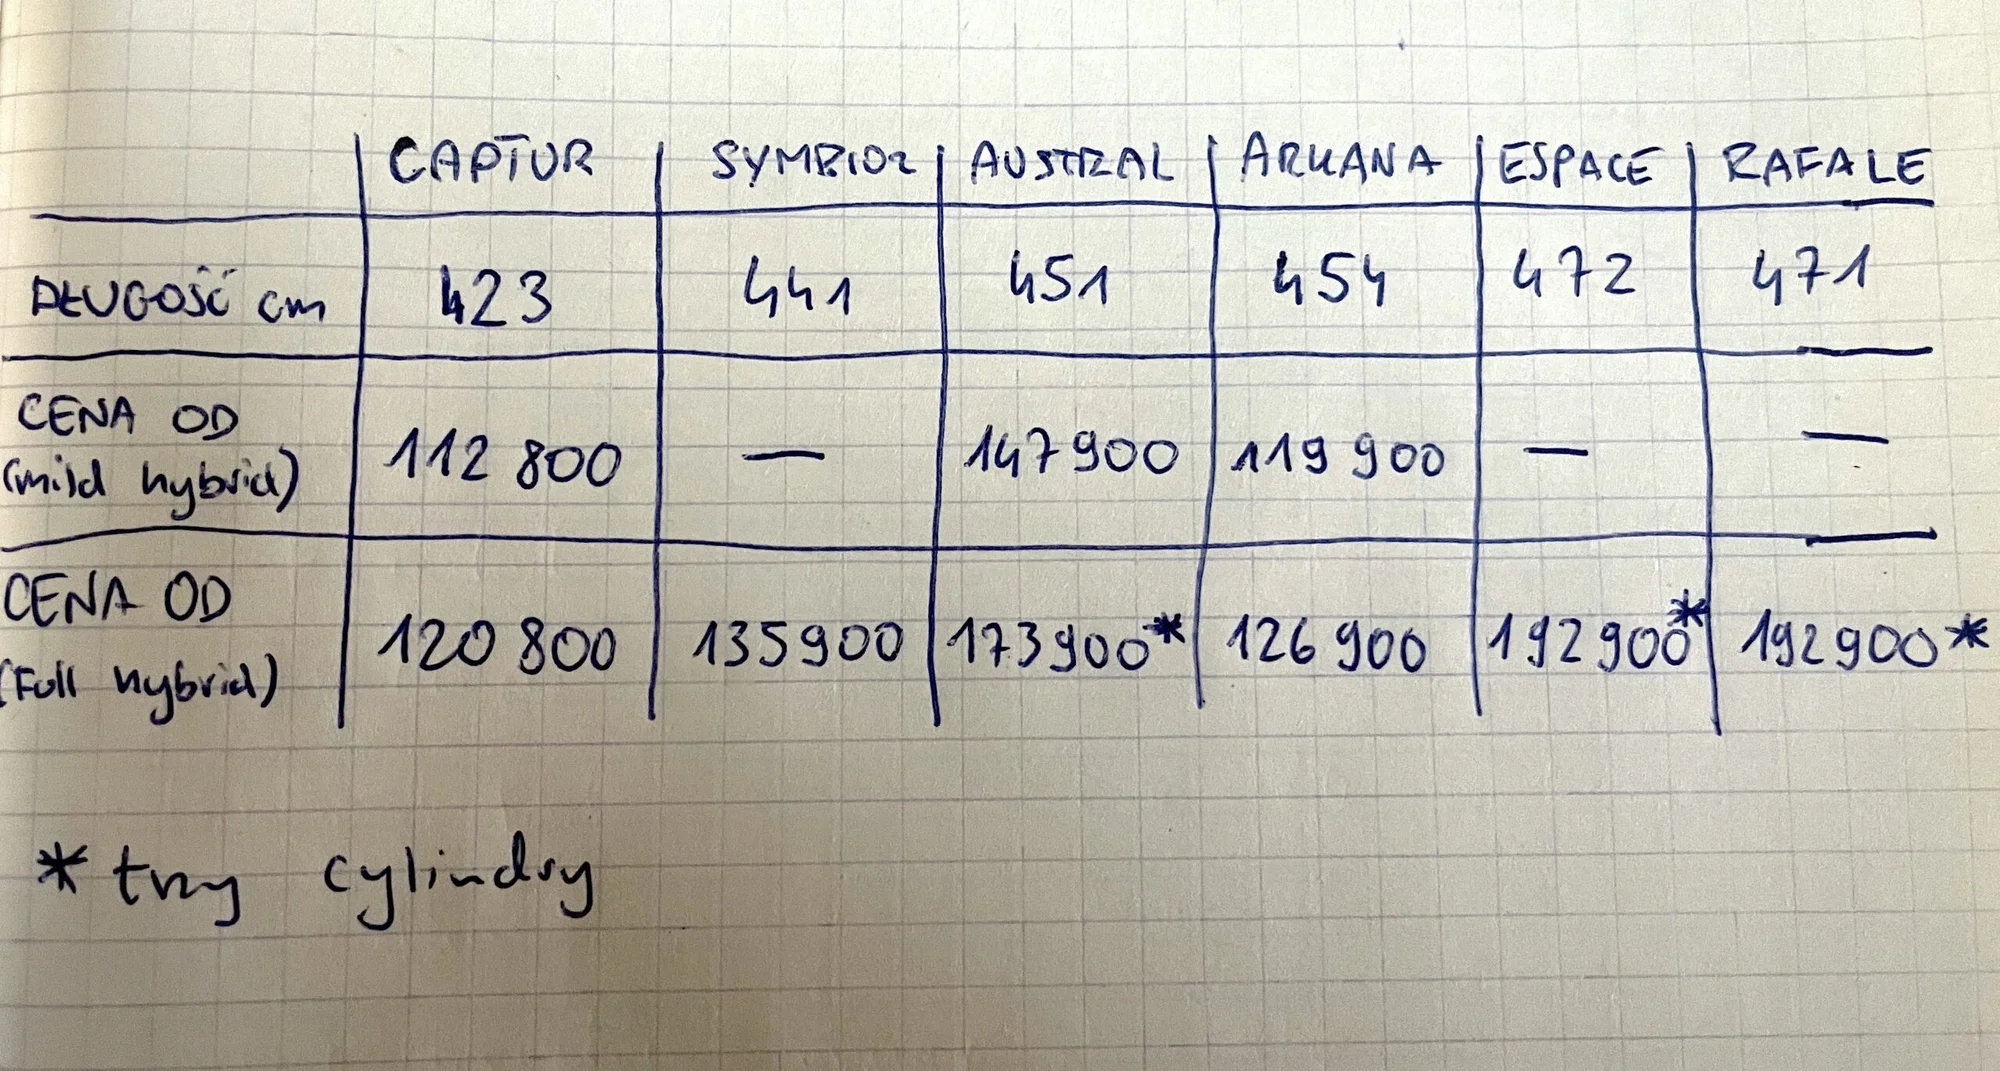 CAPTUR SYMBIOZ AUSTRAL ARKANA ESPACE RAFALE
DŁUGOŚĆ cm 423 441 451 454 472 471
CENA OD
(mild hybrid) 112 800 — 147 900 119 900 — —
CENA OD
(Full hybrid) 120 800 135 900 173 900* 126 900 192 900* 192 900*
* trzy cylindry